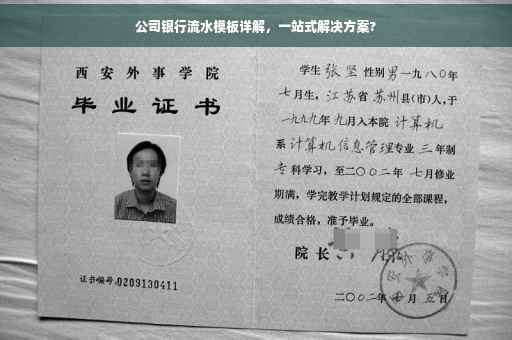 公司银行流水模板详解，一站式解决方案?
西安外事学院
毕业证书
证书编号:0209130411
学生 张坚 性别 男 一九八〇年
七月生，江苏省 苏州县(市)人，于
一九九九年 九月入本院 计算机
系 计算机信息管理专业 三 年制
专 科学习，至二〇〇二年 七月修业
期满，学完教学计划规定的全部课程，
成绩合格，准予毕业。
院长
二〇〇二年 七 月 五 日